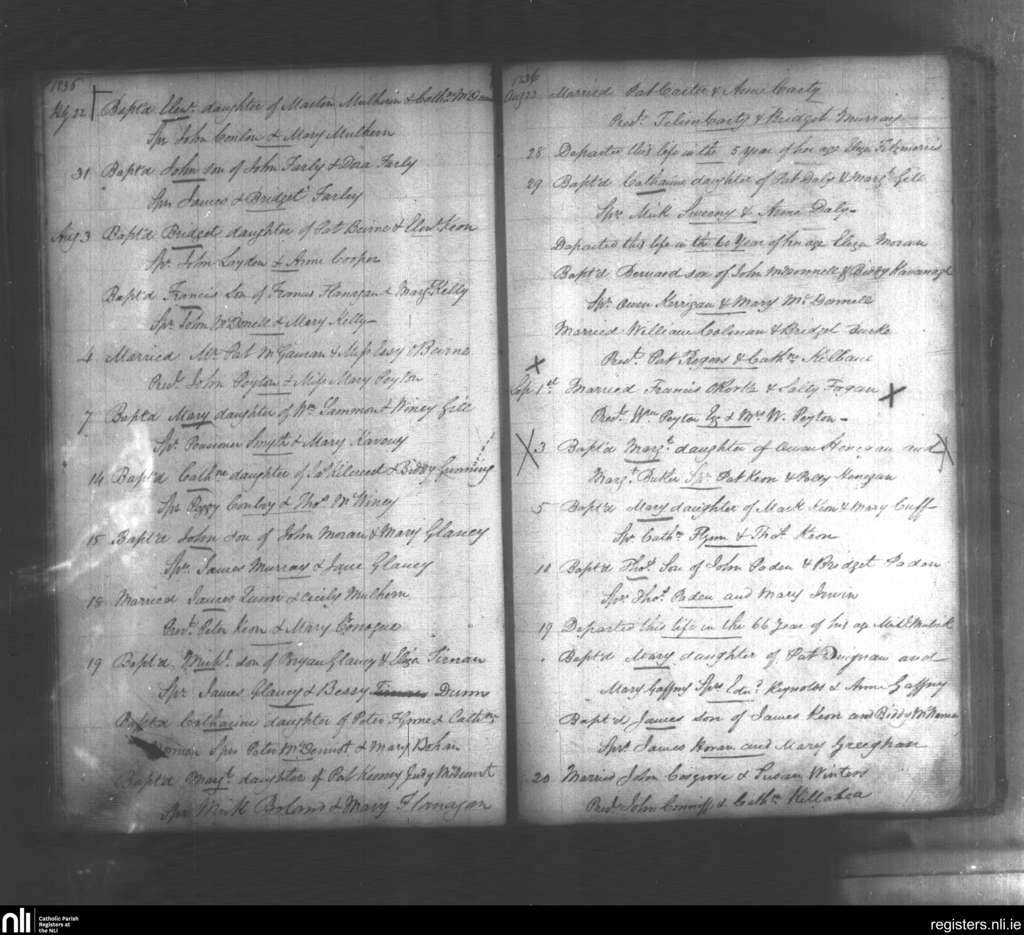 1836
July 22 Bapt'd Elenr. daughter of Marten Mulhern & Cathn.
Spr John Conlon & Mary Mulhern
31 Bapt'd John son of John Farly & Farly
Sprs James & Bridget Farley
Aug 3 Bapt'd Bridget daughter of Pat Beirne & Elenr. Keon
Spr. John Loyden & Anne Cooper
Bapt'd Francis Son of Francis Flanagan & Margt. Kelly
Spr John McDonell & Mary Kelly
4 Married Mr. Pat McGauran & Miss Essy OBeirne
Prest. John Peyton & Miss Mary Peyton
7 Bapt'd Mary daughter of Wm. Sammon & Winey Gill
Spr. Smyth & Mary
14 Bapt'd Cathne daughter of & Biddy Gunning
Sprs Peggy Conboy & Thos. McWiney
15 Bapt'd John son of John Moran & Mary Glancy
Sprs. James Murray & Jane Glancy
18 Married James Quinn & Cicily Mulhern
Prest. Peter Keon & Mary Conogue
19 Bapt'd son of Bryan Glancy & Eliza Tirnan
Spr James Glancy & Bessy Dunn
Bapt'd Catharine daughter of Peter & Cath.
Sprs Peter McDermot & Mary
Bapt'd Margt. daughter of Pat Keeney Judy McDermot
Sprs Boland & Mary Flanagan
1836
Aug 23 Married Pat Carter & Anne Carty
Prest. Carty & Bridget Murray
28 Departed this life in the 5 year of her age Eliza Fitzmorris
29 Bapt'd Catharine daughter of Pat Daly & Margt. Gill
Sprs. Sweeny & Anne Daly
Departed this life in the 60 Year of her age Eliza Moran
Bapt'd Bernard son of John McDonnell & Biddy Kavanagh
Spr. Owen Kerrigan & Mary Mc Donnell
Married William Colman & Bridget Burke
Prest. Pat Rogers & Cathn.
Sep 1st Married Francis & Sally Fogan
Prest. Wm Peyton Esq & Mrs W. Peyton
3 Bapt'd Margt. daughter of Owen Honegan and
Margt. Butler Spr. Pat Keon & Polly Honegan
5 Bapt'd Mary daughter of Mark Keon & Mary Cuff
Spr. Cathn. Flynn & Thos. Keon
10 Bapt'd Thos. Son of John Paden & Bridget Padan
Sprs. Thos. Paden and Mary Irwin
19 Departed this life in the 66 year of his age
Bapt'd Mary daughter of Pat Duignan and
Mary Gaffny Sprs Edwd. Reynolds & Anne Gaffny
Bapt'd James son of James Keon and Biddy
Sprs James Horan and Mary Greeghan
20 Married John Cosgrove & Susan Winters
Prest. John Conniff & Cathn Killabea
nli Catholic Parish
Registers at
the NLI
registers.nli.ie